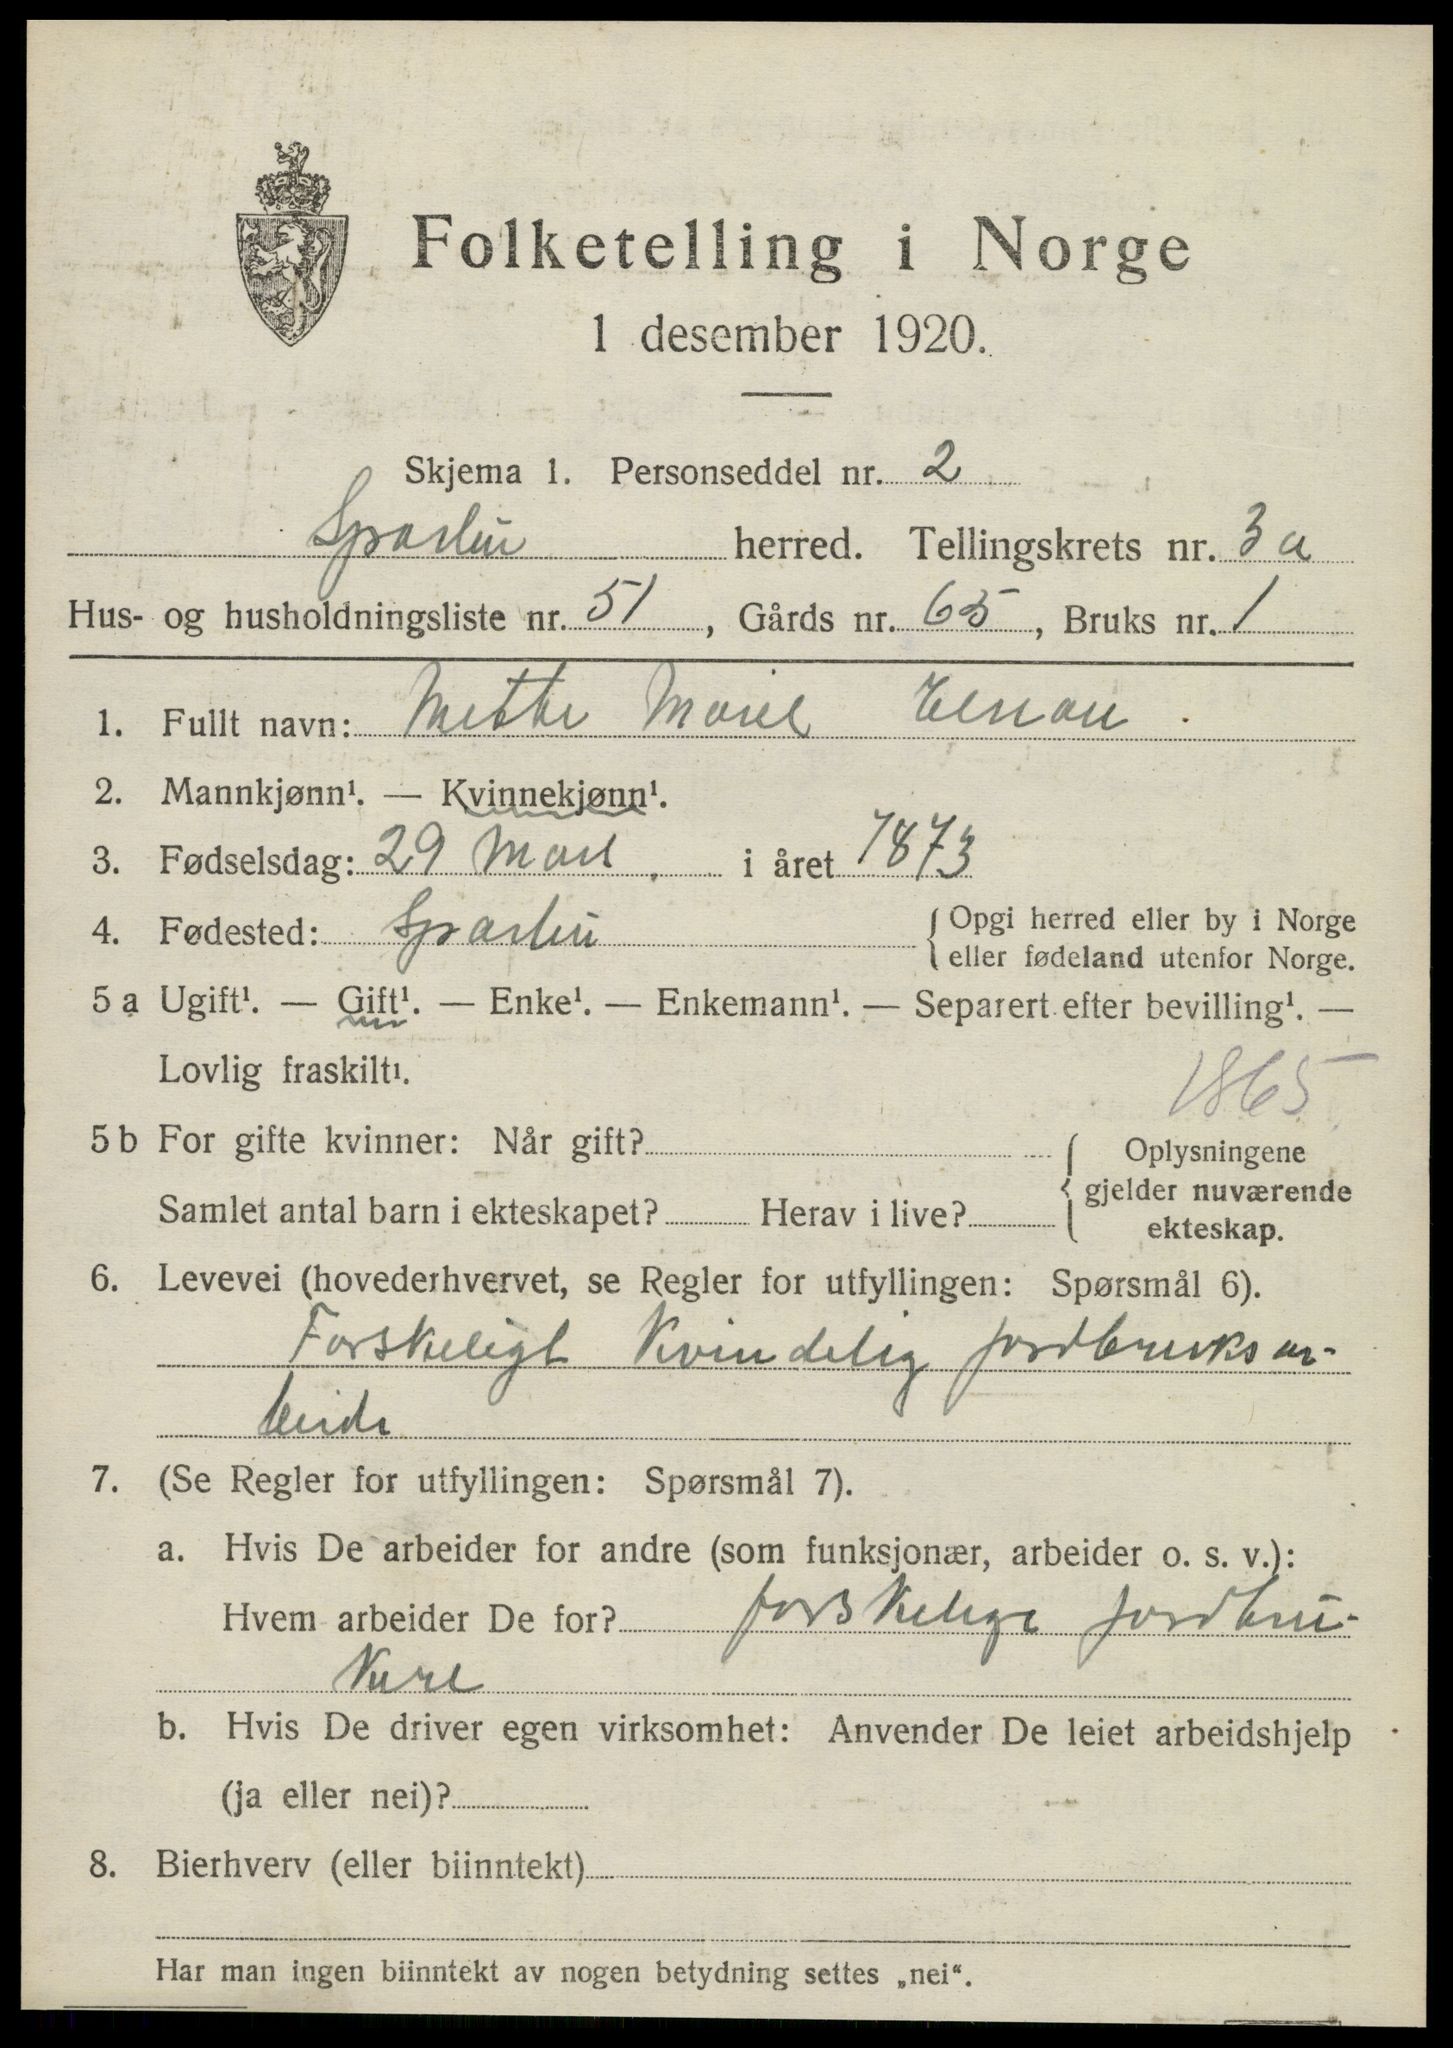 Folketelling i Norge
1 desember 1920.
Skjema 1. Personseddel nr. 2
Sparbu herred. Tellingskrets nr. 3a
Hus- og husholdningsliste nr. 51, Gårds nr. 65, Bruks nr. 1
1. Fullt navn: Mette Marie
2. Mannkjønn¹. — Kvinnekjønn¹.
3. Fødselsdag: 29 Mars i året 1873
4. Fødested: Sparbu { Opgi herred eller by i Norge
eller fødeland utenfor Norge.
5 a Ugift¹. — Gift¹. — Enke¹. — Enkemann¹. — Separert efter bevilling¹. —
Lovlig fraskilt¹.
1865
5 b For gifte kvinner: Når gift? { Oplysningene
gjelder nuværende
Samlet antal barn i ekteskapet? Herav i live?
ekteskap.
6. Levevei (hovederhvervet, se Regler for utfyllingen: Spørsmål 6).
Forskeligt Kvindelig jordbruksar-
beide
7. (Se Regler for utfyllingen: Spørsmål 7).
a. Hvis De arbeider for andre (som funksjonær, arbeider o. s. v.):
Hvem arbeider De for? forskelige jordbru-
kere
b. Hvis De driver egen virksomhet: Anvender De leiet arbeidshjelp
(ja eller nei)?
8. Bierhverv (eller biinntekt)
Har man ingen biinntekt av nogen betydning settes „nei“.